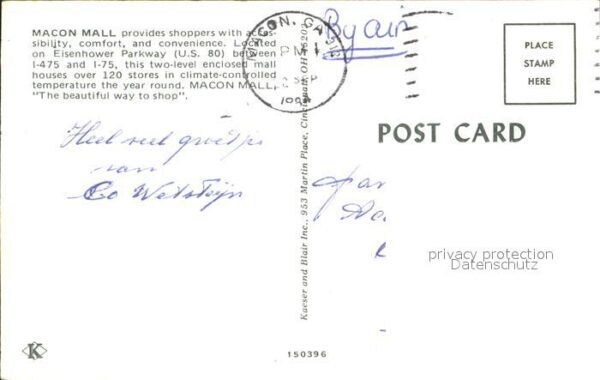 MACON MALL provides shoppers with acces-
sibility, comfort, and convenience. Located
on Eisenhower Parkway (U.S. 80) between
I-475 and I-75, this two-level enclosed mall
houses over 120 stores in climate-controlled
temperature the year round. MACON MALL,
"The beautiful way to shop".
Heel veel groetjes
van
Co Wetsteijn
MACON, GA
PM
SEP
By air
PLACE
STAMP
HERE
POST CARD
Kaeser and Blair Inc., 953 Martin Place, Cincinnati, OH 45202
privacy protection
Datenschutz
K
150396